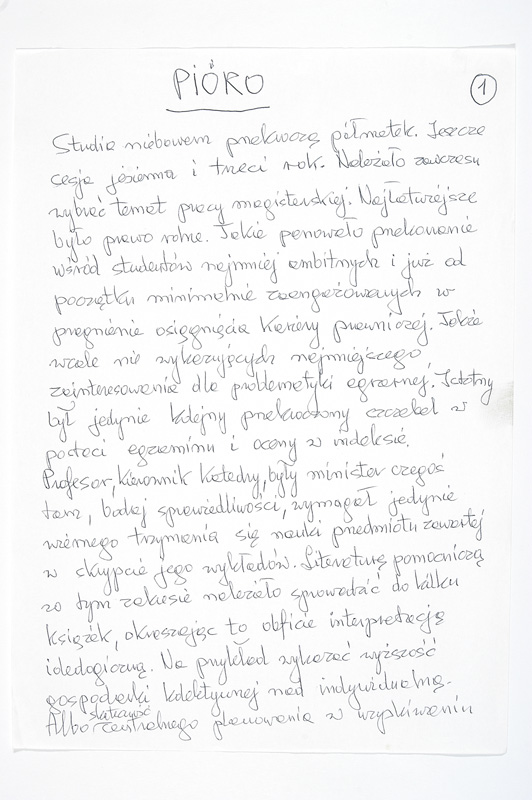 PIÓRO
1
Studia niebawem przekroczą półmetek. Jeszcze
sesja jesienna i trzeci rok. Należało zawczasu
wybrać temat pracy magisterskiej. Najłatwiejsze
było prawo rolne. Takie panowało przekonanie
wśród studentów najmniej ambitnych i już od
początku minimalnie zaangażowanych w
pragnienie osiągnięcia kariery prawniczej. Także
wcale nie wykazujących najmniejszego
zainteresowania dla problematyki agrarnej. Istotny
był jedynie kolejny przekroczony szczebel w
postaci egzaminu i oceny w indeksie.
Profesor, kierownik Katedry, były minister czegoś
tam, bodaj sprawiedliwości, wymagał jedynie
wiernego trzymania się nauki przedmiotu zawartej
w skrypcie jego wykładów. Literaturę pomocniczą
w tym zakresie należało sprowadzić do kilku
książek, okraszając to obficie interpretacją
ideologiczną. Na przykład wykazać wyższość
gospodarki kolektywnej nad indywidualną.
Albo skuteczność centralnego planowania w uzyskiwaniu